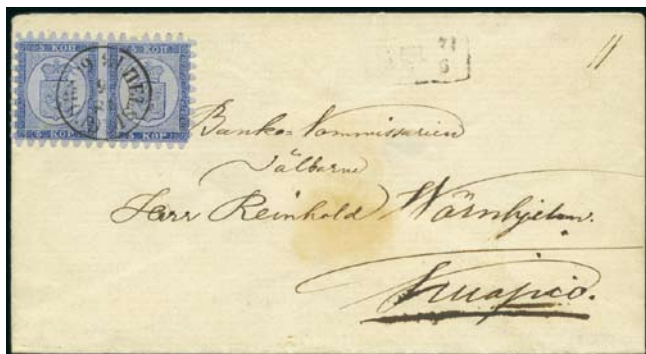 5 КОП 5 КОП
5. KOP 5. KOP
71
6
11
Banko-Kommissarien
Välborne
Herr Reinhold Wärnhjelm.
Kuopio.